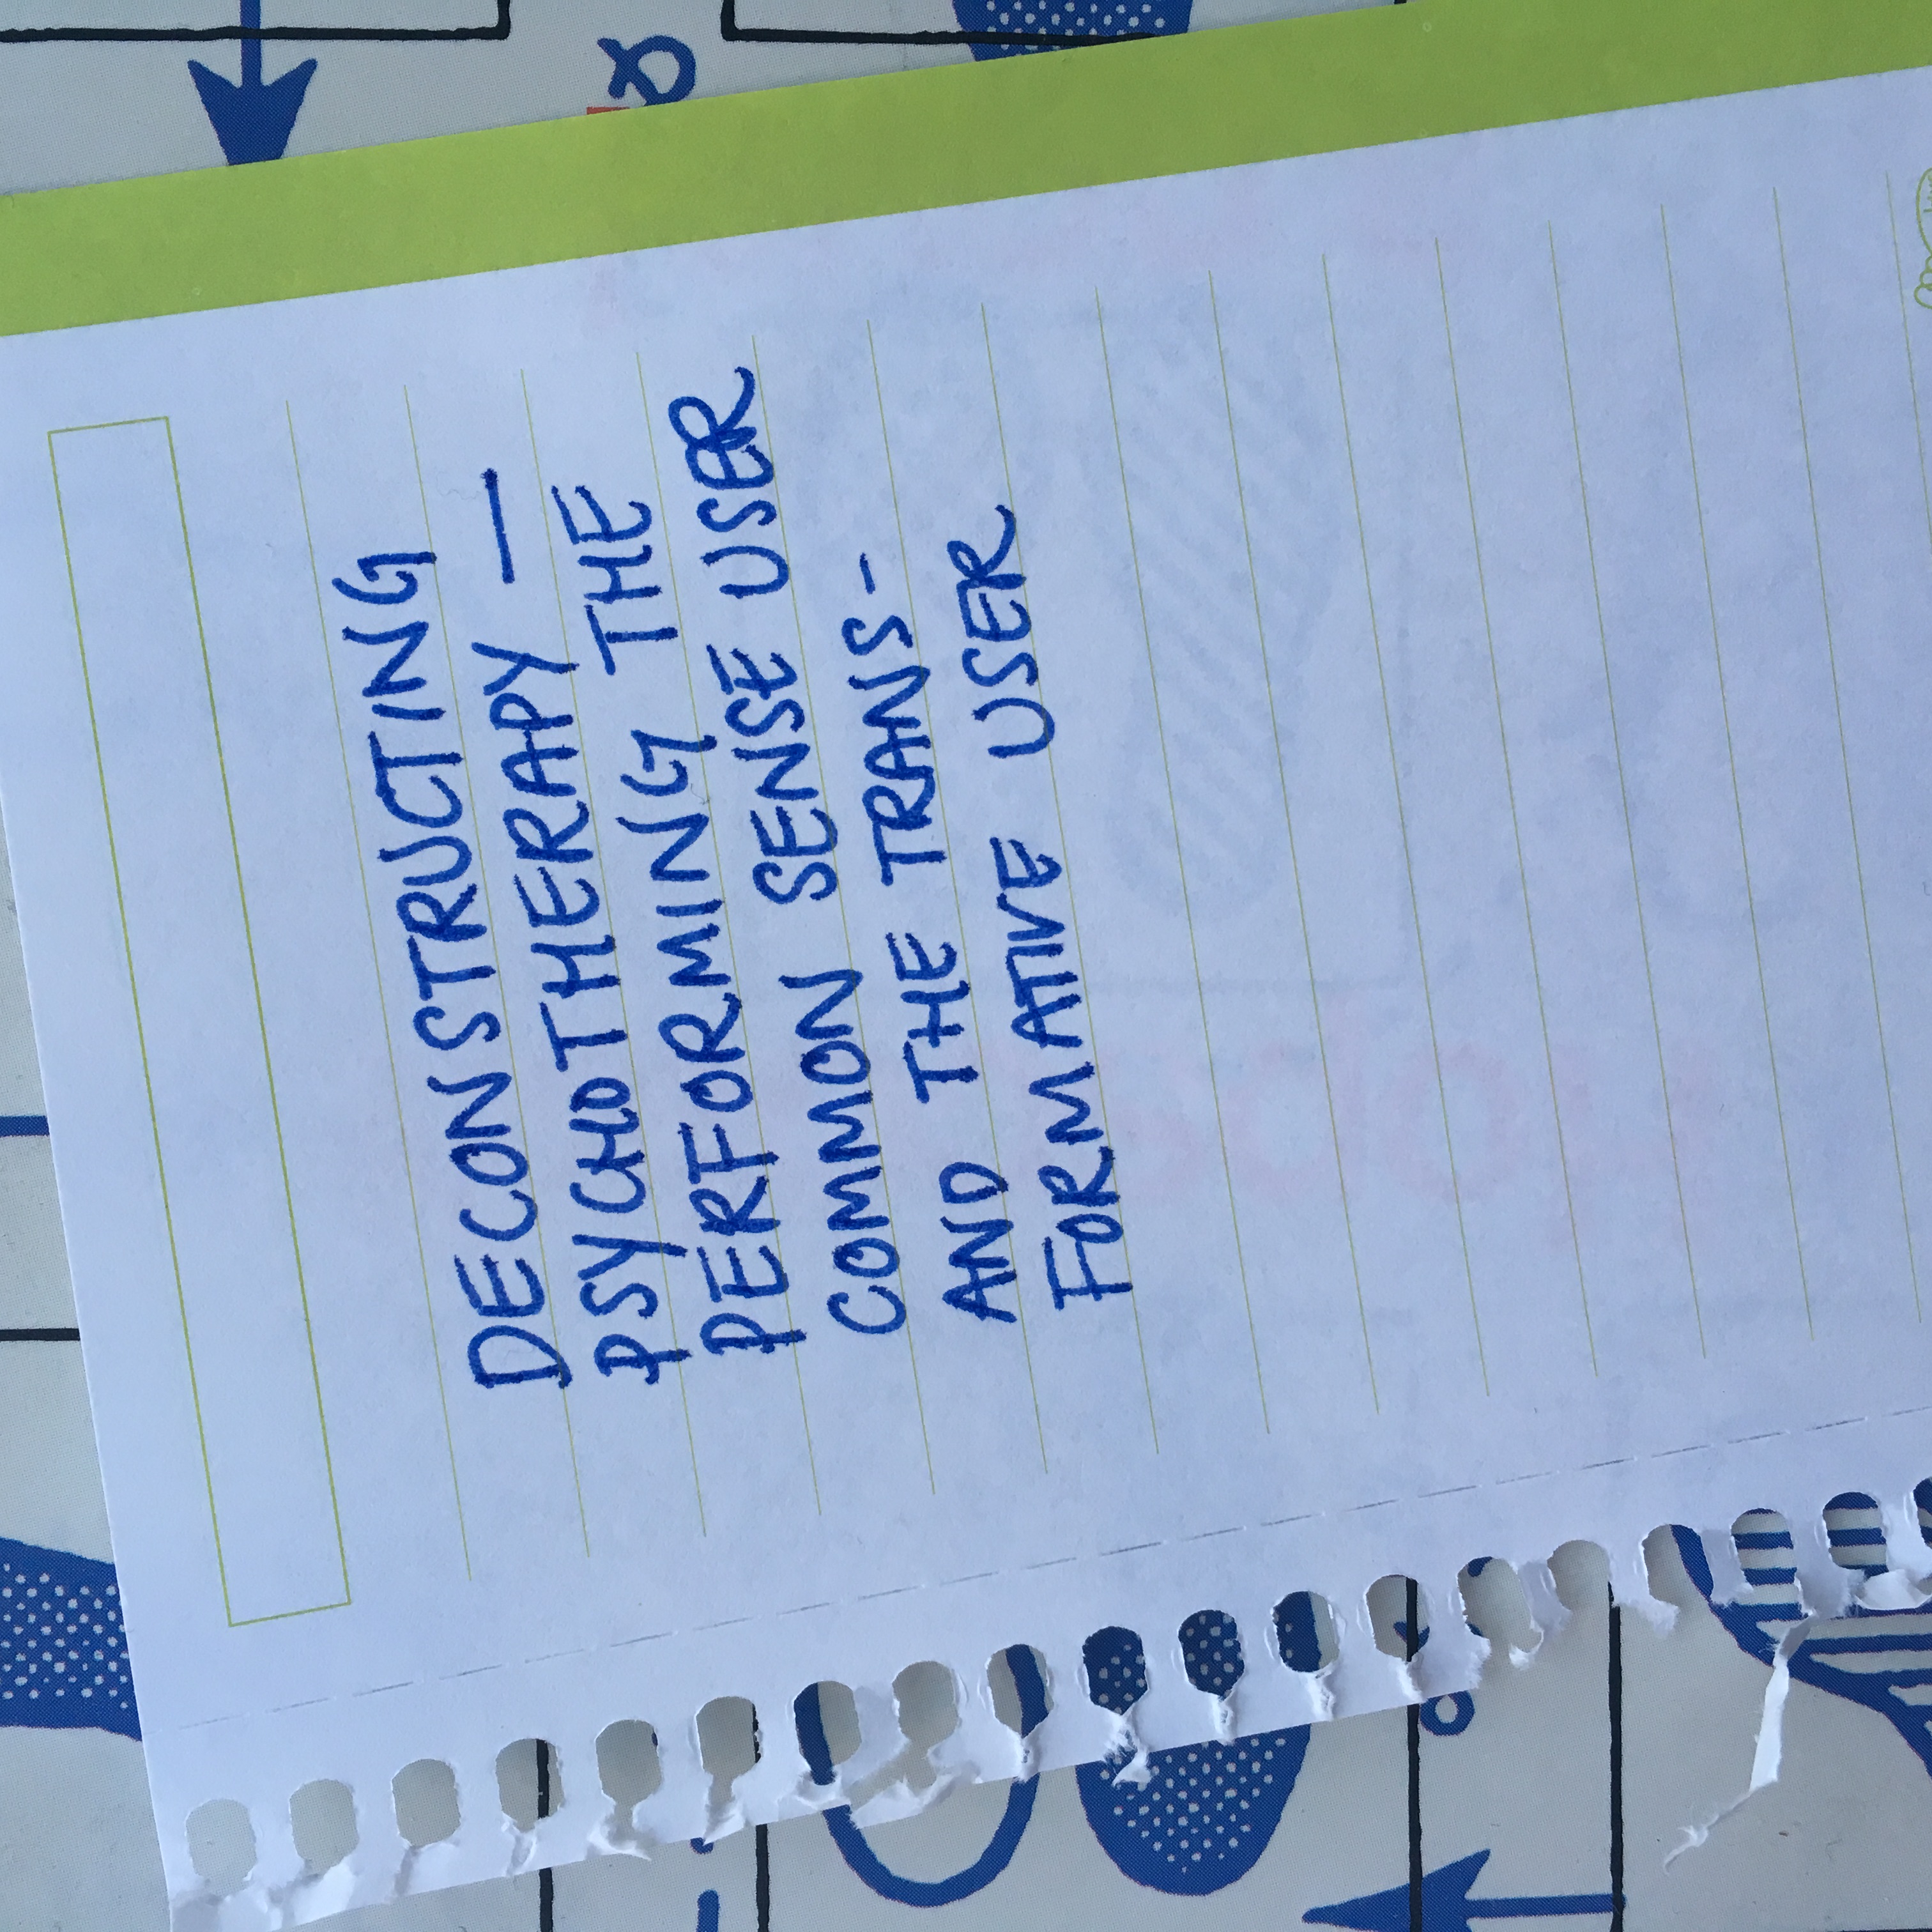 DECONSTRUCTING
PSYCHOTHERAPY —
PERFORMING THE
COMMON SENSE USER
AND THE TRANS-
FORMATIVE USER